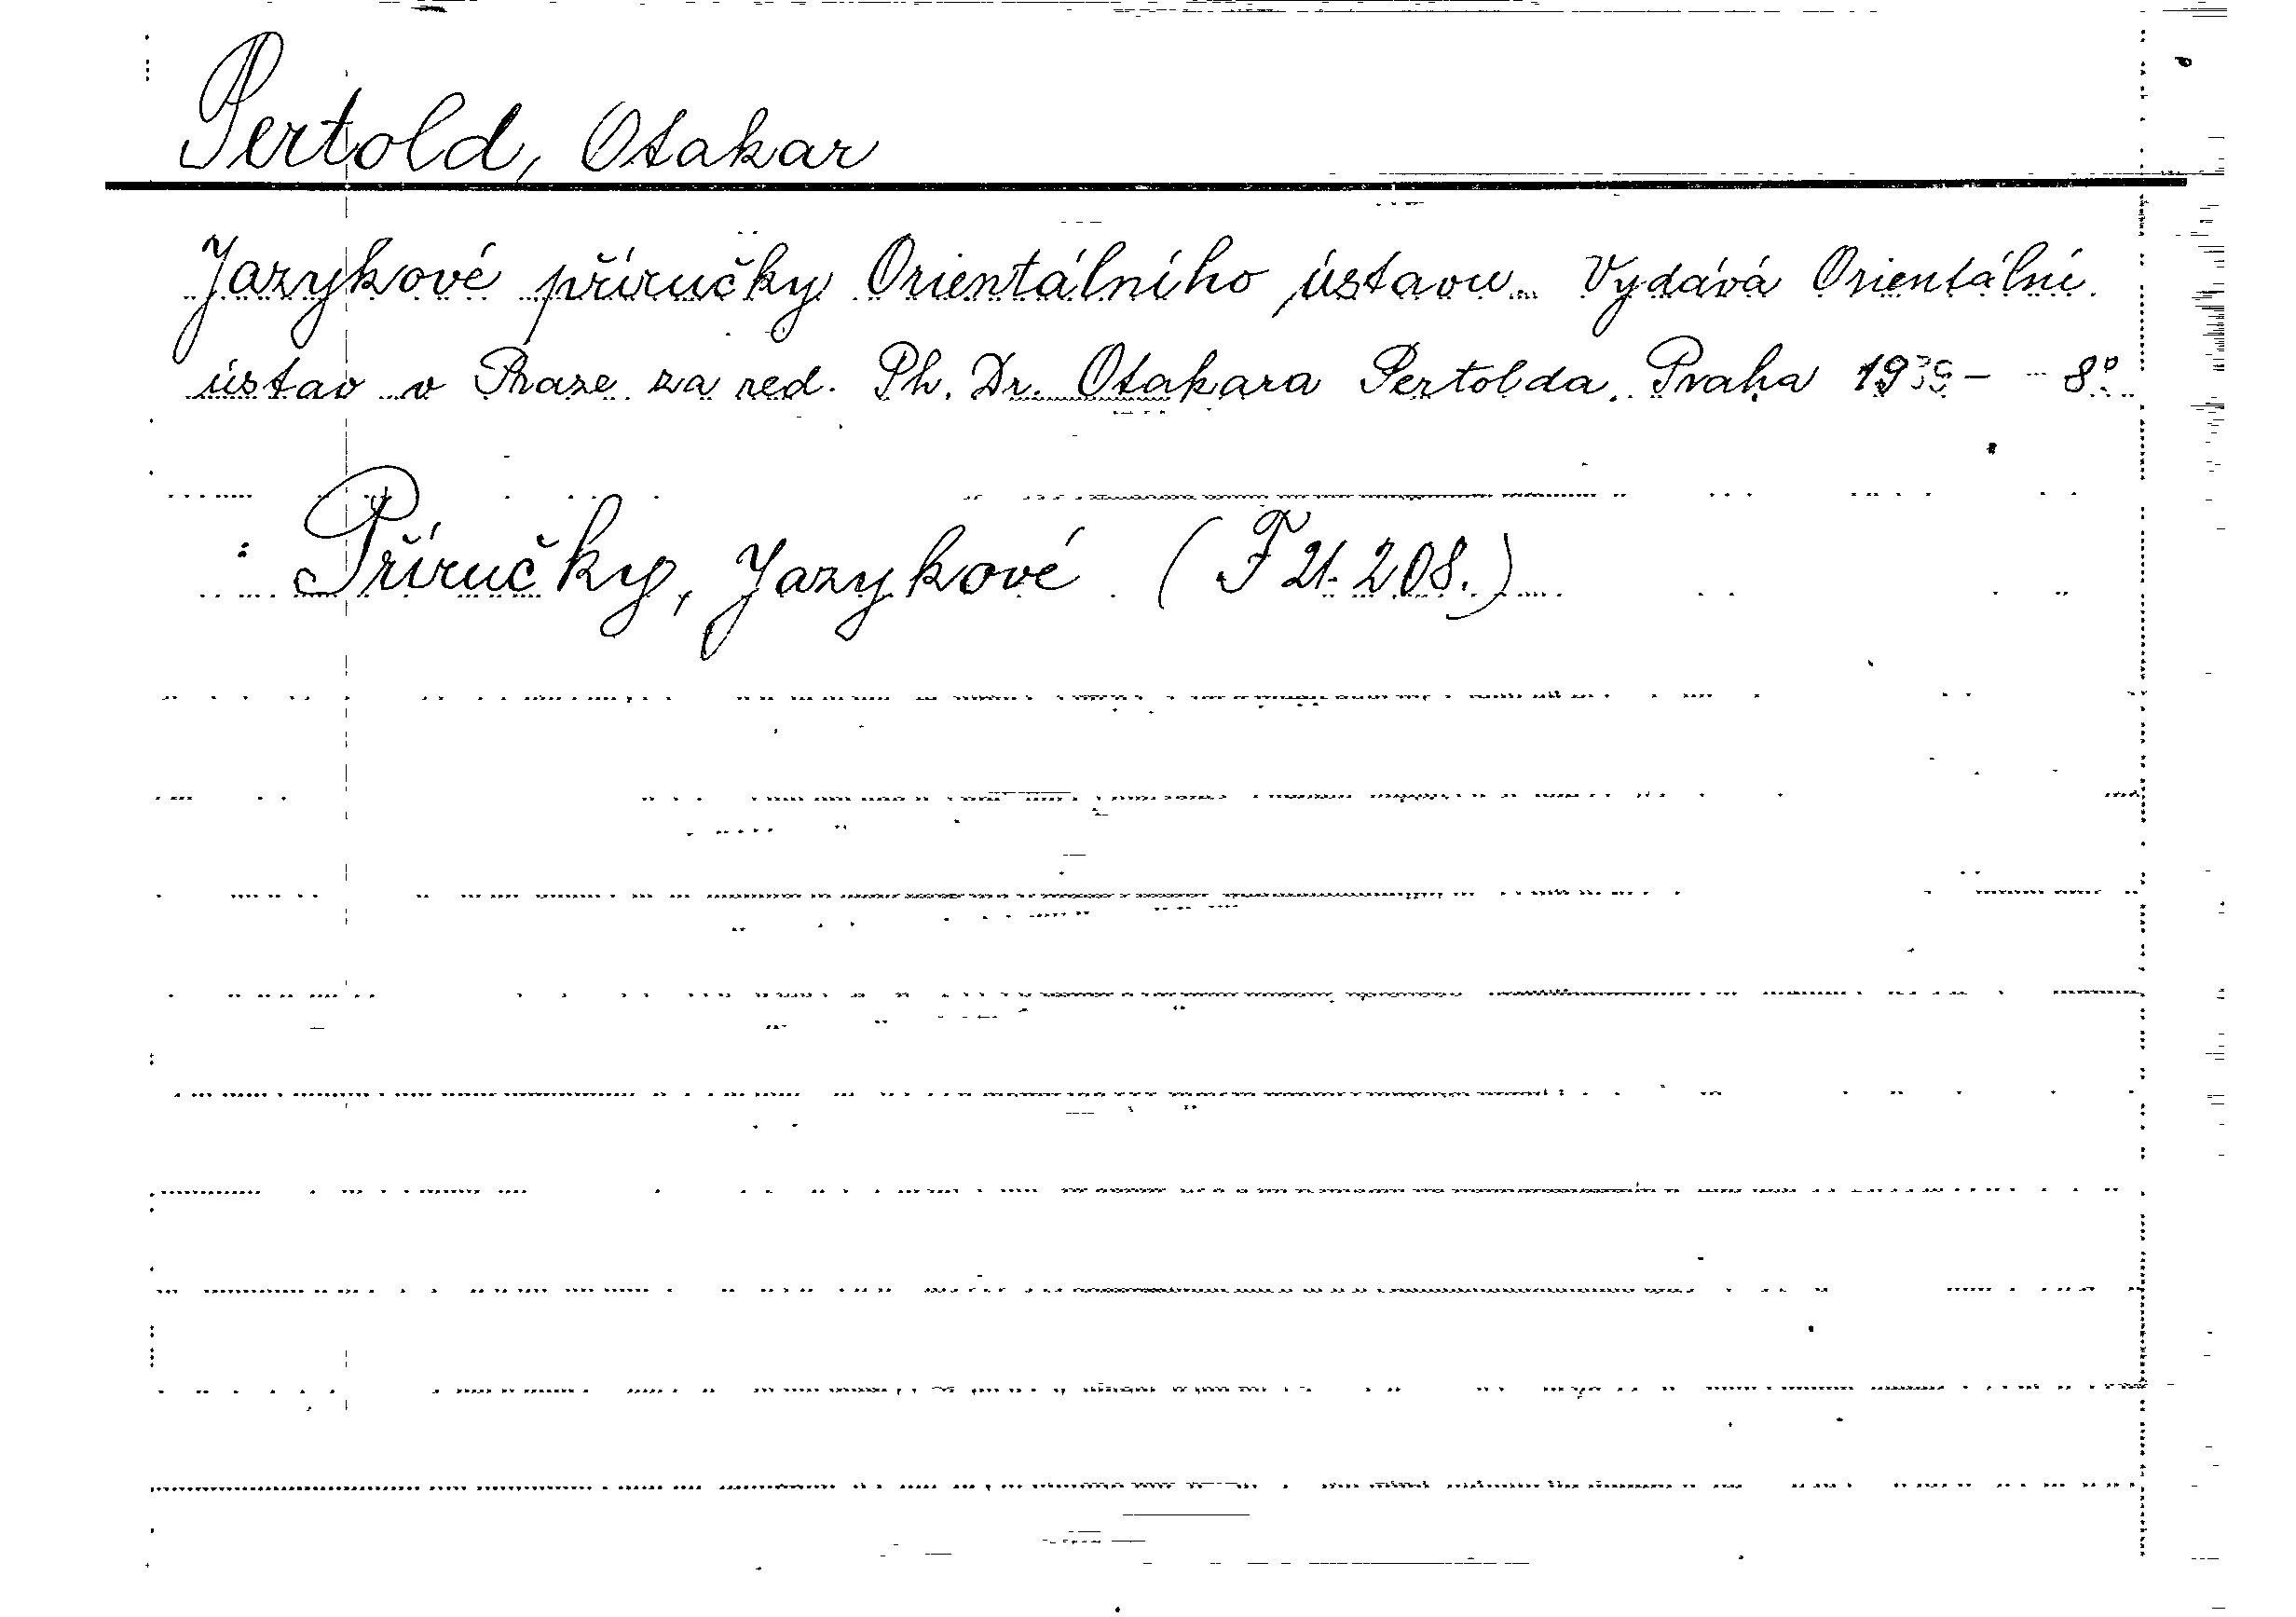 Pertold, Otakar
Jazykové příručky Orientálního ústavu. Vydává Orientální
ústav v Praze za red. Ph. Dr. Otakara Pertolda. Praha 1939- - 8°.
Příručky, Jazykové (F 21.208.)